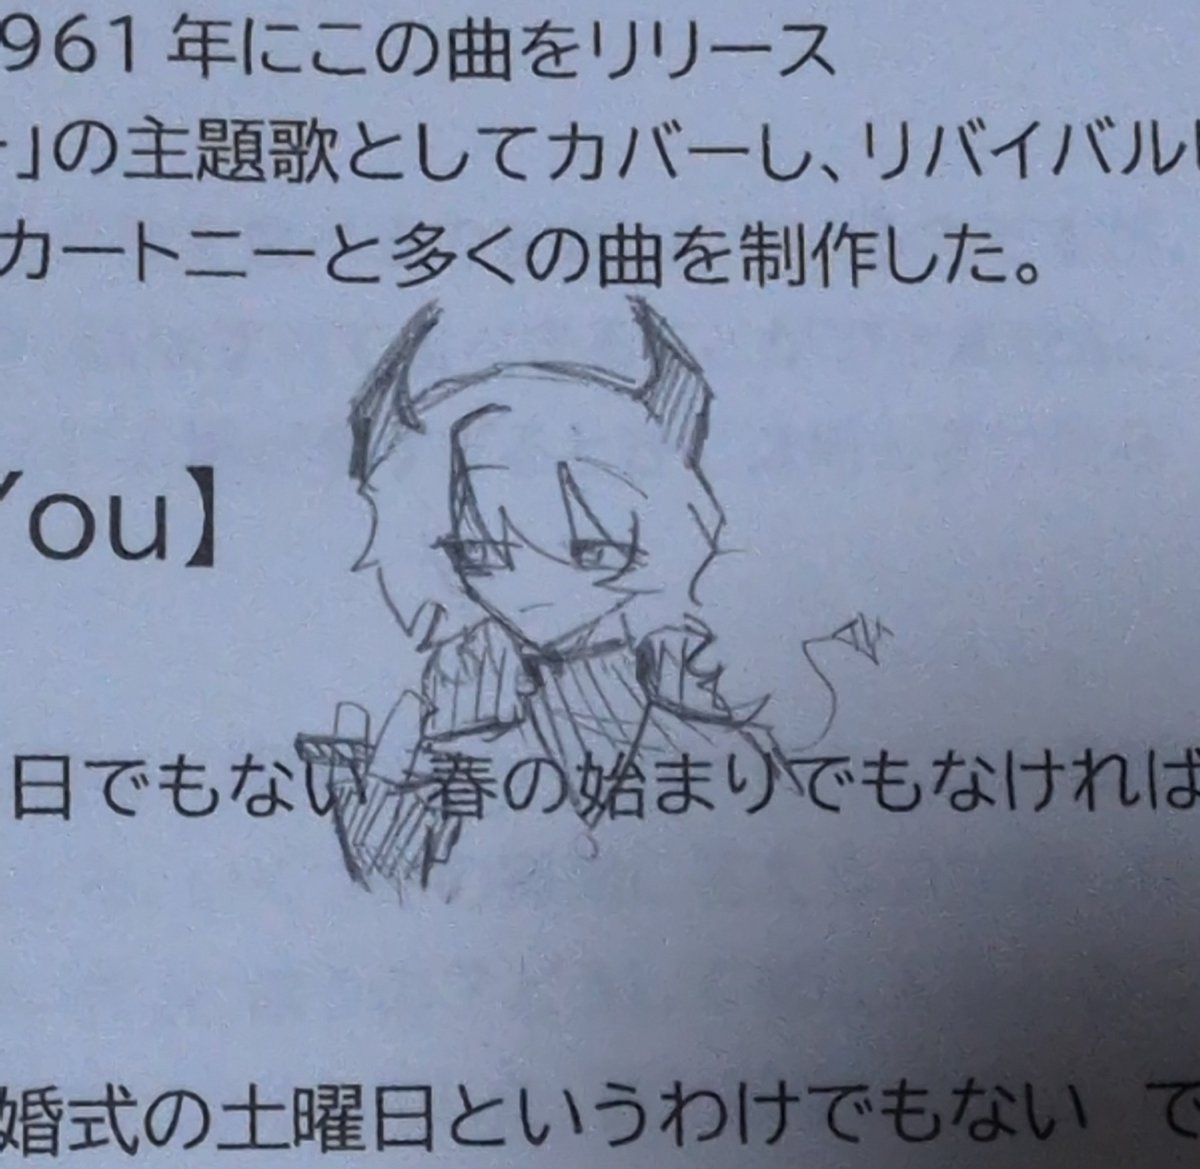 961 年にこの曲をリリース
」の主題歌としてカバーし、リバイバル
カートニーと多くの曲を制作した。
You】
日でもない 春の始まりでもなければ
婚式の土曜日というわけでもない で